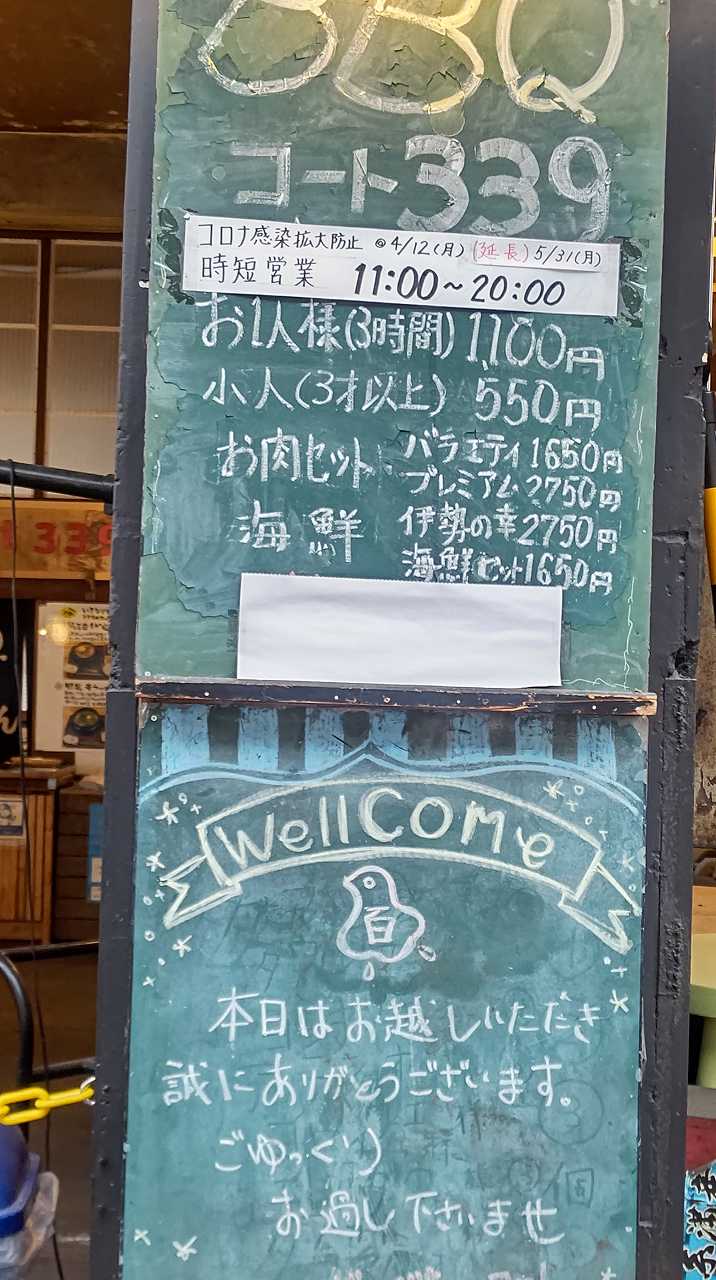 BBQ
コート339
コロナ感染拡大防止 @4/12(月)(延長)5/31(月)
時短営業 11:00~20:00
お1人様(3時間) 1,100円
小人(3才以上) 550円
お肉セット バラエティ1650円
プレミアム2750円
海鮮 伊勢の幸2750円
海鮮セット1650円
Wellcome
百
本日はお越しいただき
誠にありがとうございます。
ごゆっくり
お過し下さいませ
339